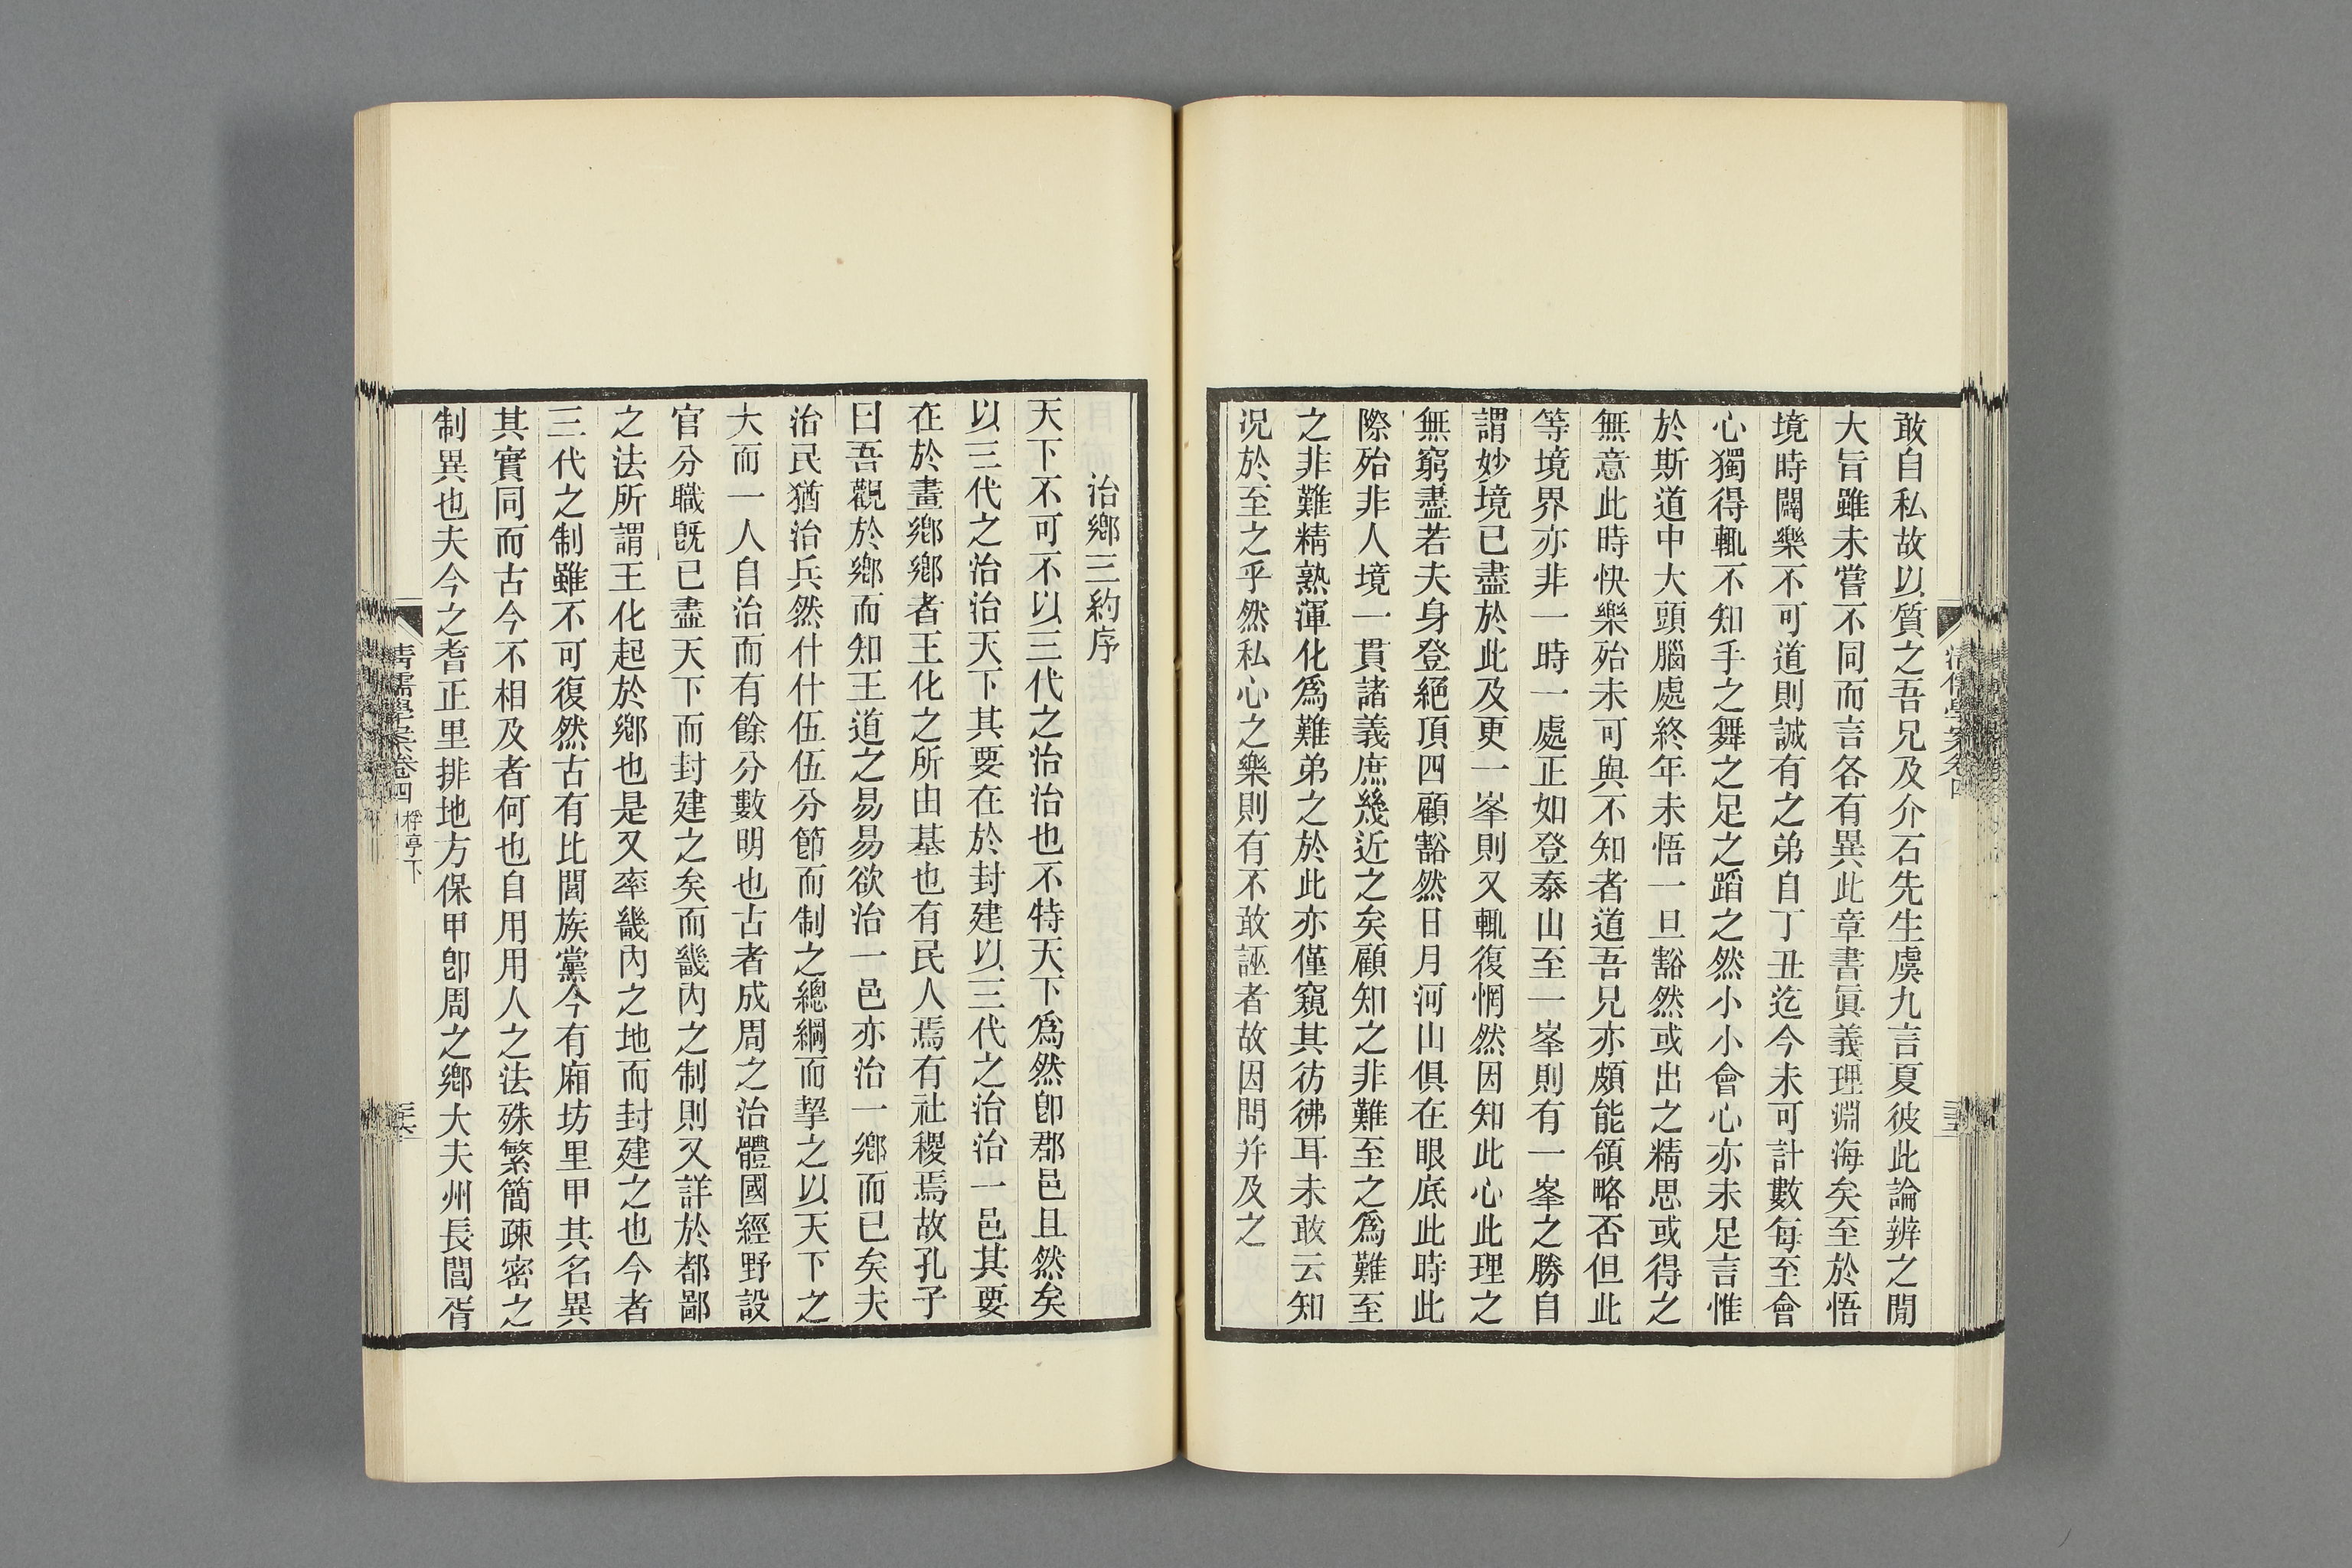 敢自私故以質之吾兄及介石先生虞九言夏彼此論辨之閒
大旨雖未嘗不同而言各有異此章書眞義理淵海矣至於悟
境時闢樂不可道則誠有之弟自丁丑迄今未可計數每至會
心獨得輒不知手之舞之足之蹈之然小小會心亦未足言惟
於斯道中大頭腦處終年未悟一旦豁然或出之精思或得之
無意此時快樂殆未可與不知者道吾兄亦頗能領略否但此
等境界亦非一時一處正如登泰山至一峯則有一峯之勝自
謂妙境已盡於此及更一峯則又輒復惘然因知此心此理之
無窮盡若夫身登絕頂四顧豁然日月河山俱在眼底此時此
際殆非人境一貫諸義庶幾近之矣顧知之非難至之爲難至
之非難精熟渾化爲難弟之於此亦僅窺其彷彿耳未敢云知
況於至之乎然私心之樂則有不敢誣者故因問并及之
治鄕三約序
天下不可不以三代之治治也不特天下爲然卽郡邑且然矣
以三代之治治天下其要在於封建以三代之治治一邑其要
在於畫鄕鄕者王化之所由基也有民人焉有社稷焉故孔子
曰吾觀於鄕而知王道之易易欲治一邑亦治一鄕而已矣夫
治民猶治兵然什什伍伍分節而制之總綱而挈之以天下之
大而一人自治而有餘分數明也古者成周之治體國經野設
官分職旣已盡天下而封建之矣而畿內之制則又詳於都鄙
之法所謂王化起於鄕也是又率畿內之地而封建之也今者
三代之制雖不可復然古有比閭族黨今有廂坊里甲其名異
其實同而古今不相及者何也自用用人之法殊繁簡疎密之
制異也夫今之耆正里排地方保甲卽周之鄕大夫州長閭胥
清儒學案卷四 桴亭下